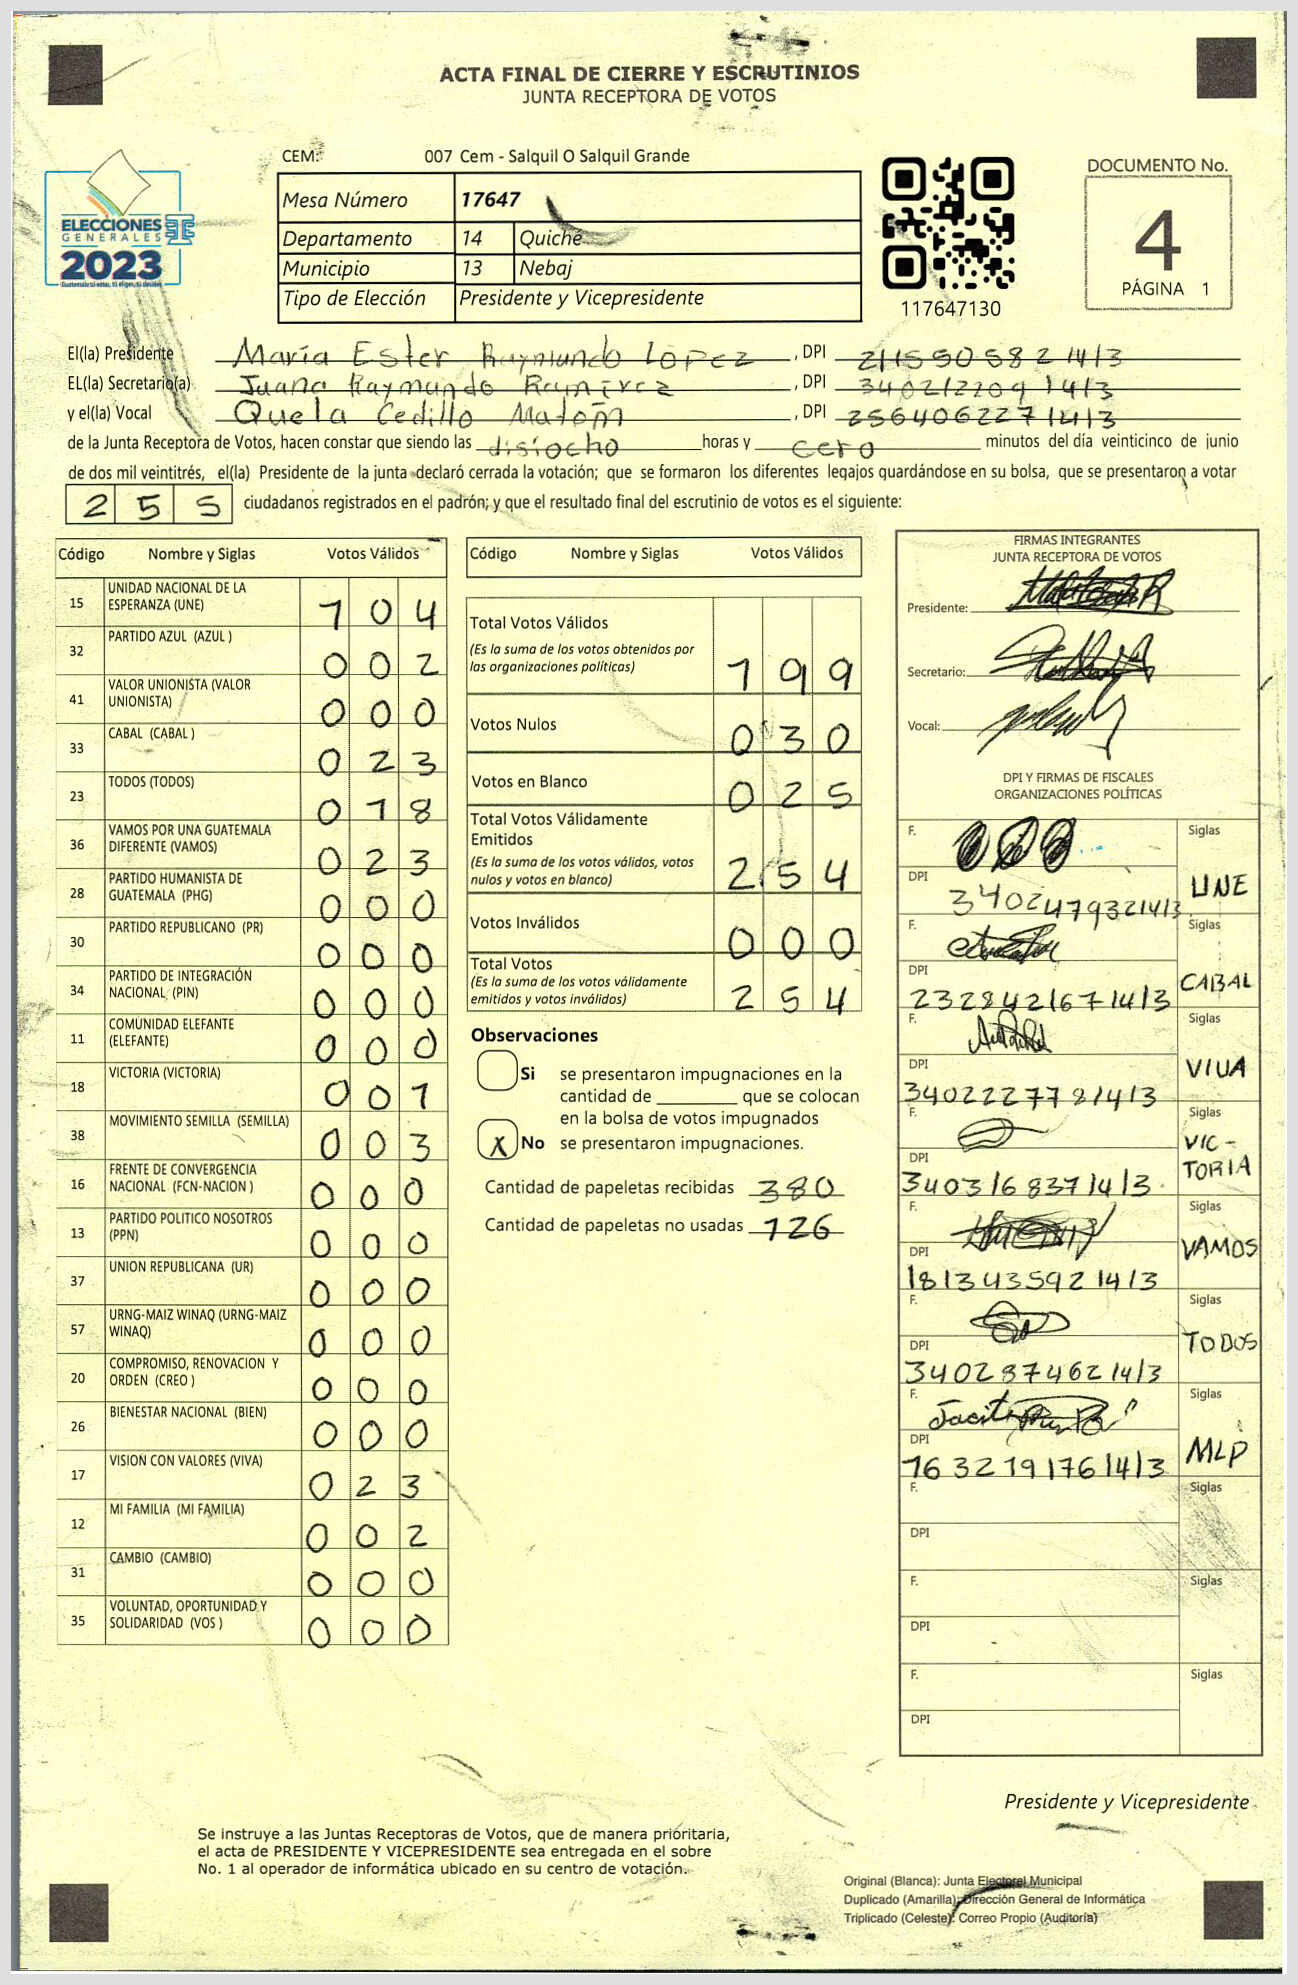 ACTA FINAL DE CIERRE Y ESCRUTINIOS
JUNTA RECEPTORA DE VOTOS
CEM: 007 Cem - Salquil O Salquil Grande
ELECCIONES
GENERALES
2023
Mesa Número 17647
Departamento 14 Quiché
Municipio 13 Nebaj
Tipo de Elección Presidente y Vicepresidente
117647130
DOCUMENTO No.
4
PÁGINA 1
El(la) Presidente María Ester Raymundo Lopez, DPI 211550582 1413
EL(la) Secretario(a) Juana Raymundo Ramirez, DPI 340212209 1413
y el(la) Vocal Quela Cedillo Matom, DPI 256406227 1413
de la Junta Receptora de Votos, hacen constar que siendo las disiocho horas y cero minutos del día veinticinco de junio
de dos mil veintitrés, el(la) Presidente de la junta declaró cerrada la votación; que se formaron los diferentes legajos quardándose en su bolsa, que se presentaron a votar
255 ciudadanos registrados en el padrón; y que el resultado final del escrutinio de votos es el siguiente:
Código Nombre y Siglas Votos Válidos
15 UNIDAD NACIONAL DE LA ESPERANZA (UNE) 104
32 PARTIDO AZUL (AZUL ) 002
41 VALOR UNIONISTA (VALOR UNIONISTA) 000
33 CABAL (CABAL ) 023
23 TODOS (TODOS) 018
36 VAMOS POR UNA GUATEMALA DIFERENTE (VAMOS) 023
28 PARTIDO HUMANISTA DE GUATEMALA (PHG) 000
30 PARTIDO REPUBLICANO (PR) 000
34 PARTIDO DE INTEGRACIÓN NACIONAL (PIN) 000
11 COMUNIDAD ELEFANTE (ELEFANTE) 000
18 VICTORIA (VICTORIA) 001
38 MOVIMIENTO SEMILLA (SEMILLA) 003
16 FRENTE DE CONVERGENCIA NACIONAL (FCN-NACION ) 000
13 PARTIDO POLITICO NOSOTROS (PPN) 000
37 UNION REPUBLICANA (UR) 000
57 URNG-MAIZ WINAQ (URNG-MAIZ WINAQ) 000
20 COMPROMISO, RENOVACION Y ORDEN (CREO ) 000
26 BIENESTAR NACIONAL (BIEN) 000
17 VISION CON VALORES (VIVA) 023
12 MI FAMILIA (MI FAMILIA) 002
31 CAMBIO (CAMBIO) 000
35 VOLUNTAD, OPORTUNIDAD Y SOLIDARIDAD (VOS ) 000
Código Nombre y Siglas Votos Válidos
Total Votos Válidos
(Es la suma de los votos obtenidos por
las organizaciones políticas) 199
Votos Nulos 030
Votos en Blanco 025
Total Votos Válidamente
Emitidos
(Es la suma de los votos válidos, votos
nulos y votos en blanco) 254
Votos Inválidos 000
Total Votos
(Es la suma de los votos válidamente
emitidos y votos inválidos) 254
Observaciones
Si se presentaron impugnaciones en la
cantidad de ________ que se colocan
en la bolsa de votos impugnados
X No se presentaron impugnaciones.
Cantidad de papeletas recibidas 380
Cantidad de papeletas no usadas 126
FIRMAS INTEGRANTES
JUNTA RECEPTORA DE VOTOS
Presidente:
Secretario:
Vocal:
DPI Y FIRMAS DE FISCALES
ORGANIZACIONES POLÍTICAS
F. Siglas
DPI 3402479321413 UNE
F. Siglas
DPI 2328421671413 CABAL
F. Siglas
DPI 3402227781413 VIVA
F. Siglas
DPI 3403168371413 VIC-
TORIA
F. Siglas
DPI 1813435921413 VAMOS
F. Siglas
DPI 3402874621413 TODOS
F. Siglas
DPI 1632191761413 MLP
F. Siglas
DPI
F. Siglas
DPI
F. Siglas
DPI
Presidente y Vicepresidente
Se instruye a las Juntas Receptoras de Votos, que de manera prioritaria,
el acta de PRESIDENTE Y VICEPRESIDENTE sea entregada en el sobre
No. 1 al operador de informática ubicado en su centro de votación.
Original (Blanca): Junta Electorel Municipal
Duplicado (Amarilla): Dirección General de Informática
Triplicado (Celeste): Correo Propio (Auditoría)